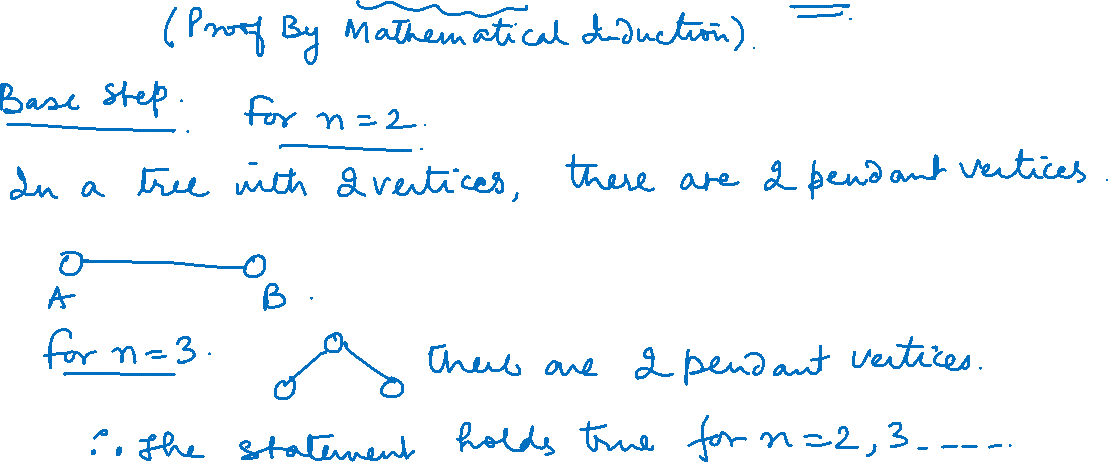 (Proof By Mathematical Induction).
Base step. for n=2.
In a tree with 2 vertices, there are 2 pendant vertices.
A B.
for n=3. there are 2 pendant vertices.
∴ The statement holds true for n=2,3-----.